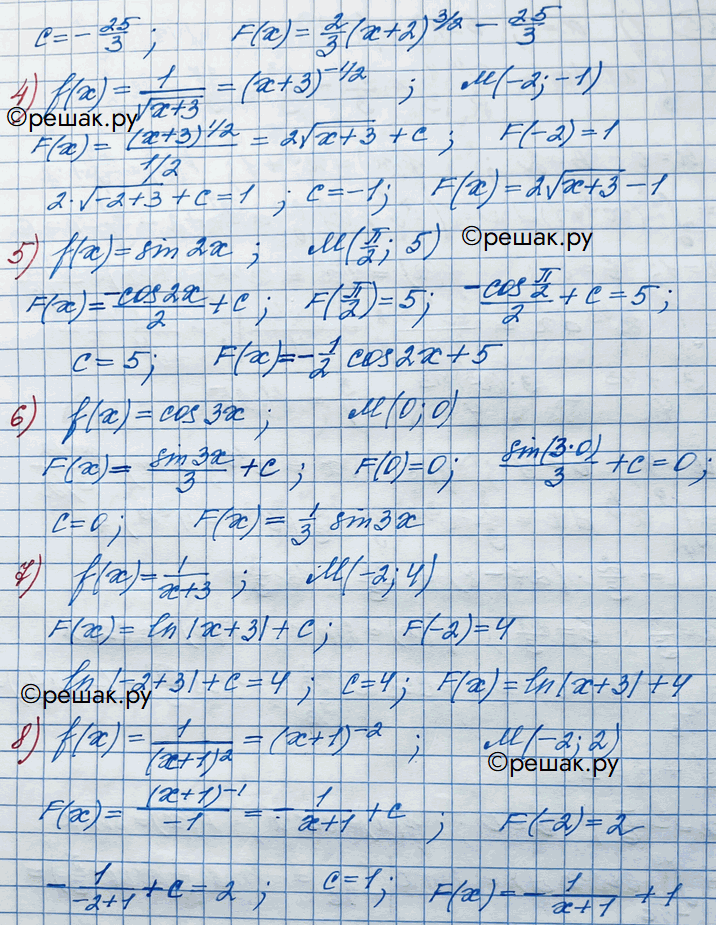 c = -25/3 ; F(x) = 2/3 (x+2)^3/2 - 25/3
4) f(x) = 1/√(x+3) = (x+3)^-1/2 ; M(-2; -1)
©решак.ру
F(x) = (x+3)^1/2 / 1/2 = 2√(x+3) + c ; F(-2) = 1
2·√(-2+3) + c = 1 ; c = -1 ; F(x) = 2√(x+3) - 1
5) f(x) = sin 2x ; M(π/2 ; 5) ©решак.ру
F(x) = -cos2x/2 + c ; F(π/2) = 5 ; -cos π/2 /2 + c = 5 ;
c = 5 ; F(x) = -1/2 cos 2x + 5
6) f(x) = cos 3x ; M(0; 0)
F(x) = sin 3x/3 + c ; F(0) = 0 ; sin(3·0)/3 + c = 0 ;
c = 0 ; F(x) = 1/3 sin3x
7) f(x) = 1/(x+3) ; M(-2; 4)
F(x) = ln|x+3| + c ; F(-2) = 4
ln|-2+3| + c = 4 ; c = 4 ; F(x) = ln|x+3| + 4
©решак.ру
8) f(x) = 1/(x+1)^2 = (x+1)^-2 ; M(-2; 2)
©решак.ру
F(x) = (x+1)^-1 / -1 = -1/(x+1) + c ; F(-2) = 2
-1/(-2+1) + c = 2 ; c = 1 ; F(x) = -1/(x+1) + 1